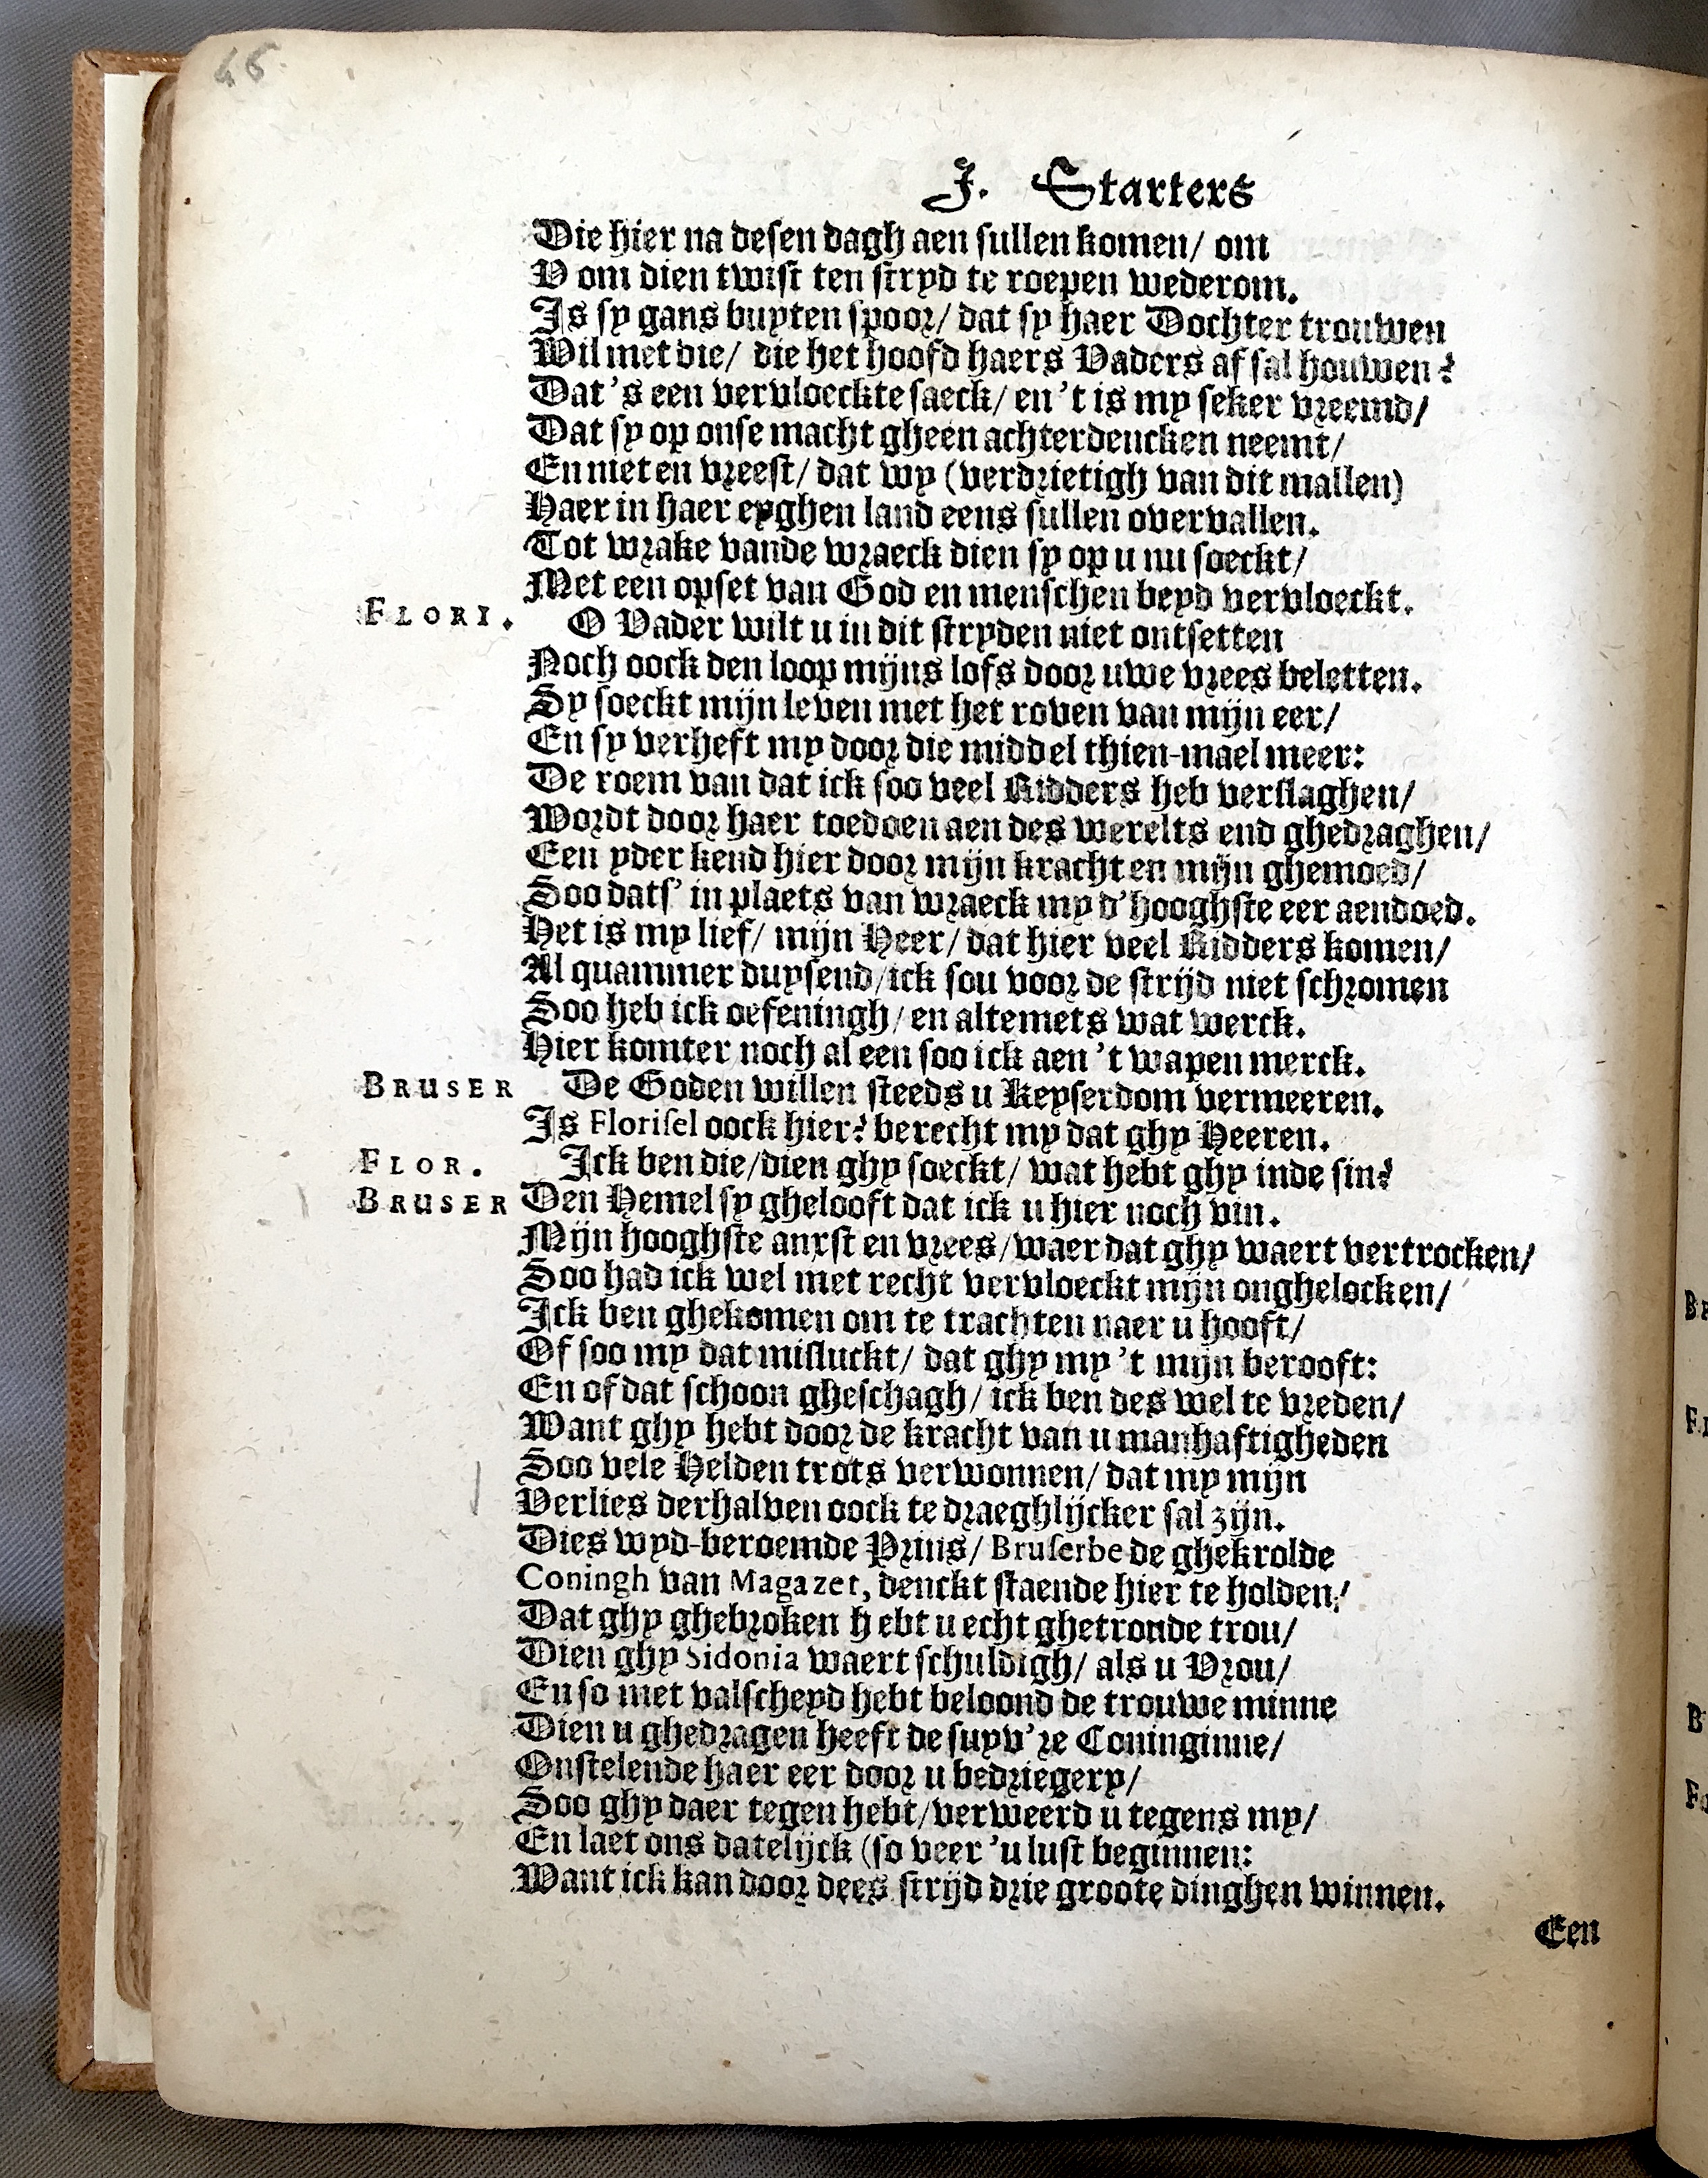 46.
J. Starters
Die hier na desen dagh aen sullen komen/ om
V om dien twist ten stryd te roepen wederom.
Is sy gans buyten spoor/ dat sy haer Dochter trouwen
Wil met die/ die het hoofd haers Vaders af sal houwen?
Dat 's een vervloeckte saeck/ en 't is my seker vreemd/
Dat sy op onse macht gheen achterdencken neemt/
En niet en vreest/ dat wy (verdrietigh van dit mallen)
Haer in haer eyghen land eens sullen overvallen.
Tot wrake vande wraeck dien sy op u nu soeckt/
Met een opset van God en menschen beyd vervloeckt.
FLORI. O Vader wilt u in dit stryden niet ontsetten
Noch oock den loop mijns lofs door uwe vrees beletten.
Sy soeckt mijn leven met het roven van mijn eer/
En sy verheft my door die middel thien-mael meer:
De roem van dat ick soo veel Ridders heb verslaghen/
Wordt door haer toedoen aen des werelts end ghedraghen/
Een yder kend hier door mijn kracht en mijn ghemoed/
Soo dats' in plaets van wraeck my d'hooghste eer aendoed.
Het is my lief/ mijn Heer/ dat hier veel Ridders komen/
Al quammer duysend/ ick sou voor de strijd niet schromen
Soo heb ick oefeningh/ en altemets wat werck.
Hier komter noch al een soo ick aen 't wapen merck.
BRUSER De Goden willen steeds u Keyserdom vermeeren.
Is Florisel oock hier? berecht my dat ghy Heeren.
FLOR. Ick ben die/ dien ghy soeckt/ wat hebt ghy inde sin?
BRUSER Den Hemel sy ghelooft dat ick u hier noch vin.
Mijn hooghste anxst en vrees/ waer dat ghy waert vertrocken/
Soo had ick wel met recht vervloeckt mijn onghelocken/
Ick ben ghekomen om te trachten naer u hooft/
Of soo my dat misluckt/ dat ghy my 't mijn berooft:
En of dat schoon gheschagh/ ick ben des wel te vreden/
Want ghy hebt door de kracht van u manhaftigheden
Soo vele Helden trots verwonnen/ dat my mijn
Verlies derhalven oock te draeghlijcker sal zijn.
Dies wyd-beroemde Prins/ Bruserbe de ghekrolde
Coningh van Magazet, denckt staende hier te holden/
Dat ghy ghebroken hebt u echt ghetronde trou/
Dien ghy Sidonia waert schuldigh/ als u Vrou/
En so met valscheyd hebt beloond de trouwe minne
Dien u ghedragen heeft de suyv're Coninginne/
Onstelende haer eer door u bedriegery/
Soo ghy daer tegen hebt/ verweerd u tegens my/
En laet ons datelijck (so veer 'u lust beginnen:
Want ick kan door dees strijd drie groote dinghen winnen.
Een